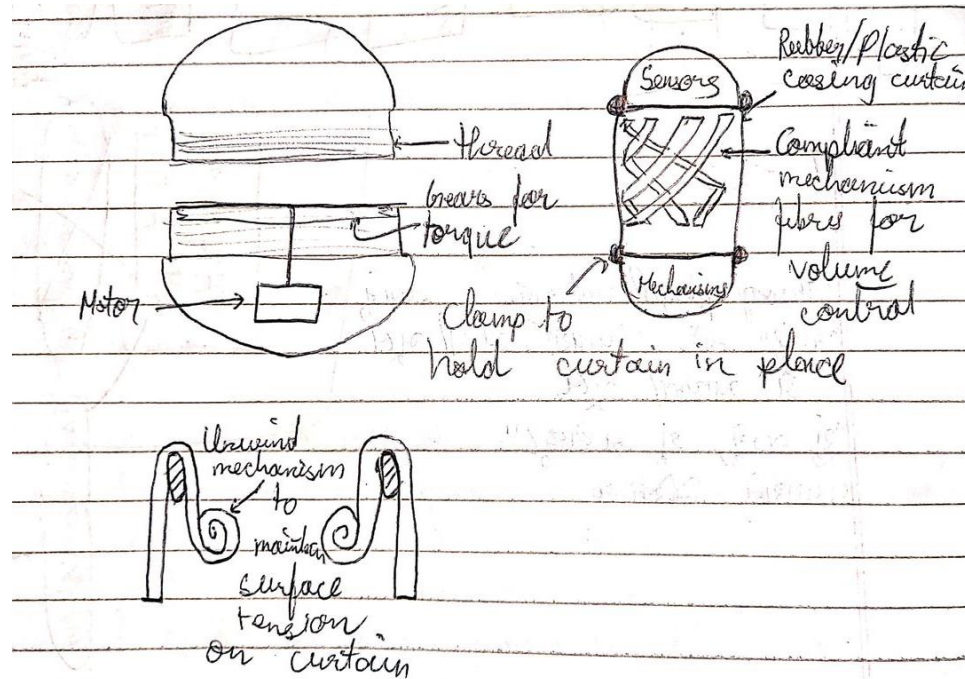 thread
Gears for
torque
Motor
Sensors
Rubber/Plastic
casing curtain
Compliant
mechanism
fibres for
volume
control
Mechanisms
Clamp to
hold curtain in place
Unwind
mechanism
to
maintain
surface
tension
on curtain